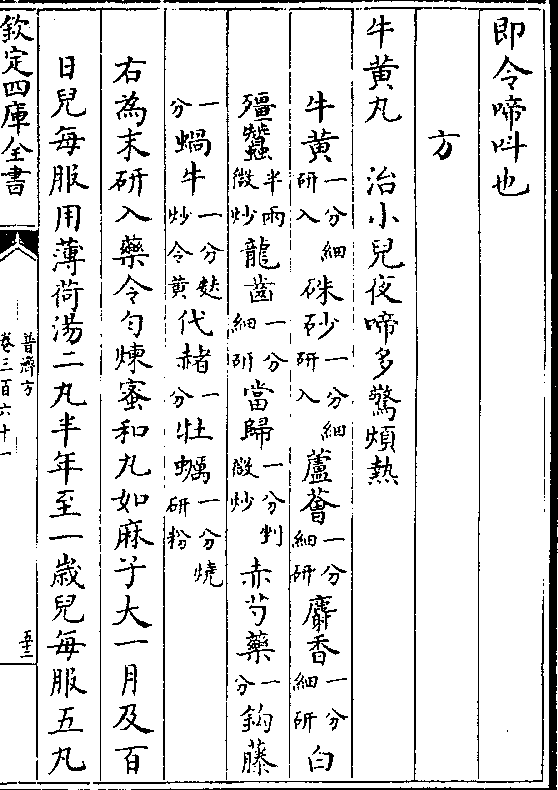 即令啼呌也
方
牛黄丸 治小兒夜啼多驚煩熱
牛黄一分細研入 硃砂一分細研入 蘆薈一分細研 麝香一分細研 白
殭蠶半兩微炒 龍齒一分細研 當歸一分剉微炒 赤芍藥一分 鈎藤
一分 蝸牛一分麩炒令黄 代赭一分 牡蠣一分燒研粉
右為末研入藥令勻煉蜜和丸如麻子大一月及百
日兒每服用薄荷湯二丸半年至一歳兒每服五丸
欽定四庫全書
普濟方
卷三百六十一
五十三